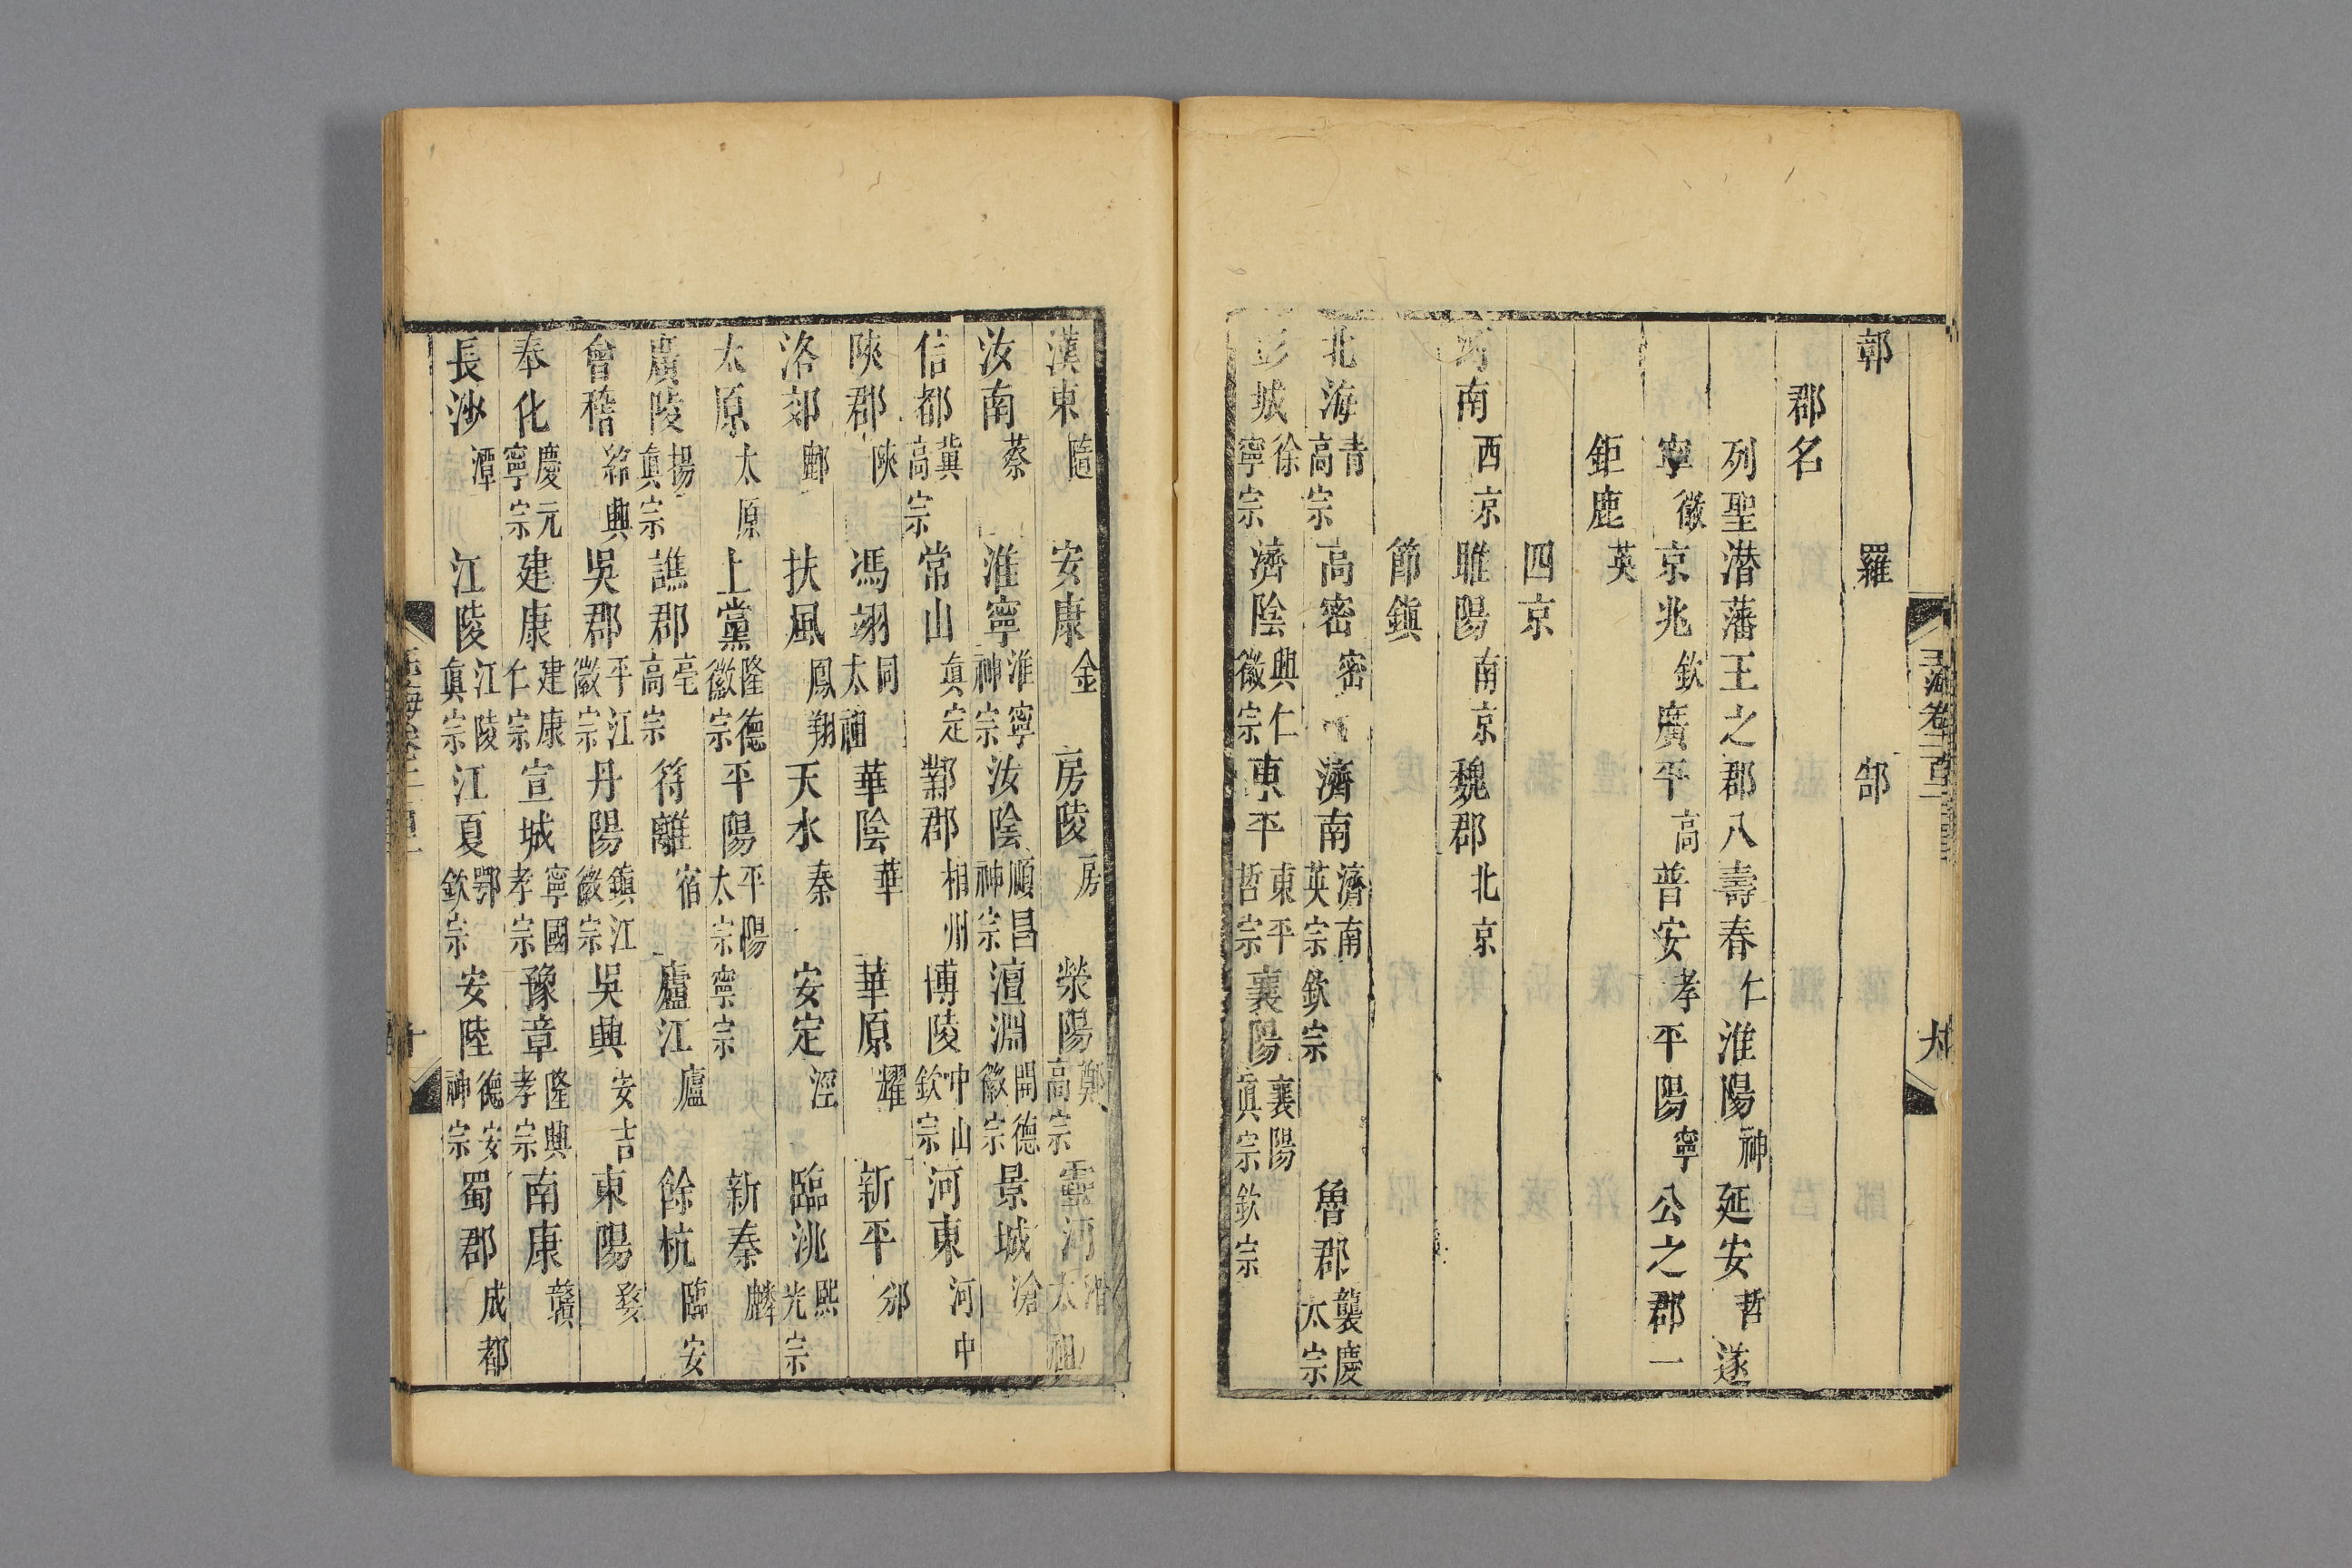 鄣 羅 郜
郡名
列聖潛藩王之郡八壽春仁淮陽神延安哲遂
寧徽京兆欽廣平高普安孝平陽寧公之郡一
鉅鹿英
四京
河南西京睢陽南京魏郡北京
節鎮
北海青高宗高密密濟南濟南英宗欽宗魯郡襲慶太宗
彭城徐寧宗濟陰興仁徽宗東平東平哲宗襄陽襄陽真宗欽宗
漢東隨安康金房陵房滎陽鄭高宗靈河滑太祖
汝南蔡淮寧淮寧神宗汝陰順昌神宗澶淵開德徽宗景城滄
信都冀高宗常山真定鄴郡相州博陵中山欽宗河東河中
陝郡陝馮翊同太祖華陰華華原耀新平邠
洛郊鄜扶風鳳翔天水秦安定涇臨洮熙光宗
太原太原上黨隆德徽宗平陽平陽太宗寧宗新秦麟
廣陵揚真宗譙郡亳高宗符離宿廬江廬餘杭臨安
會稽紹興吳郡平江徽宗丹陽鎮江徽宗吳興安吉東陽婺
奉化慶元寧宗建康建康仁宗宣城寧國孝宗豫章隆興孝宗南康贛
長沙潭江陵江陵真宗江夏鄂欽宗安陸德安神宗蜀郡成都